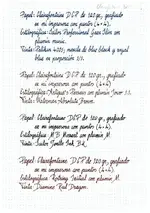 Papel: Clairefontaine DCP de 120 gr., grafiado
en mi impresora con puntos (4×4).
Estilográfica: Sailor Professional Gear Slim con
plumín music.
Tinta: Pelikan 4001, mezcla de blue black y royal
blue en proporción 1:1.
Papel: Clairefontaine DCP de 120 gr., grafiado
en mi impresora con puntos (4×4).
Estilográfica: con plumín
Tinta:
Papel: Clairefontaine DCP de 120 gr., grafiado
en mi impresora con puntos (4×4).
Estilográfica: M.B. con plumín M.
Tinta: Sailor Ink.
Papel: Clairefontaine DCP de 120 gr., grafiado
en mi impresora con puntos (4×4).
Estilográfica: Rotring con plumín M.
Tinta: Diamine Red Dragon.